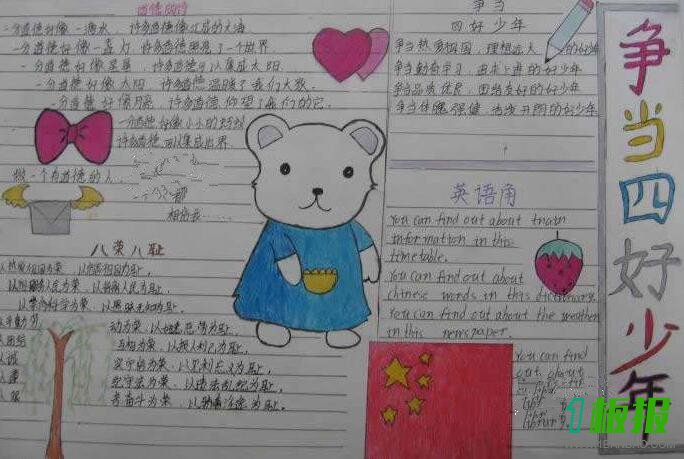 道德的诗
一分道德好像一滴水，许多道德像汇成的大海
一分道德好像一盏灯，许多道德照亮了一个世界
一分道德好像星星，许多道德可以集成太阳
一分道德好像太阳，许多道德温暖了我们大家
一分道德好像月亮，许多道德
一分道德好像小小的
许多道德可以集成世界
做一个有道德的人
八荣八耻
以热爱祖国为荣，以危害祖国为耻。
以服务人民为荣，以背离人民为耻。
以崇尚科学为荣，以愚昧无知为耻。
以辛勤劳动为荣，以好逸恶劳为耻。
以团结互助为荣，以损人利己为耻。
以诚实守信为荣，以见利忘义为耻。
以遵纪守法为荣，以违法乱纪为耻。
以艰苦奋斗为荣，以骄奢淫逸为耻。
争当
四好少年
争当热爱祖国，理想远大的好少年
争当勤奋学习，追求上进的好少年
争当品质优良，团结友好的好少年
争当体魄强健，活泼开朗的好少年
英语角
You can find out about train
information in this
timetable.
You can find out about
chinese words in this dictionary.
You can find out about the weather
in this newspaper.
You can find
out about
争当四好少年
板报